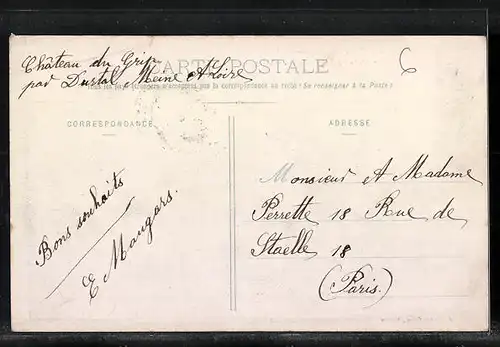 Château du Grip
par Durtal, Meine & Loire
CARTE POSTALE
Tous les pays étrangers n'acceptent pas la correspondance au recto (Se renseigner à la Poste)
6
CORRESPONDANCE
Bons souhaits
E Maugars.
ADRESSE
Monsieur et Madame
Perrette 18 Rue de
Staelle 18
(Paris.)